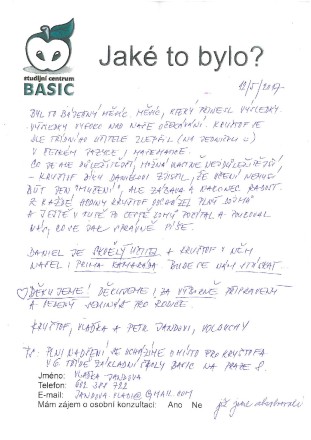 studijní centrum
BASIC
Jaké to bylo?
BYL TO BÁJEČNÝ MĚSÍC. MĚSÍC, KTERÝ PŘINESL VÝSLEDKY.
VÝSLEDKY VYSOKO NAD NAŠE OČEKÁVÁNÍ. KRYŠTOF SE
DLE TŘÍDNÍHO UČITELE ZLEPŠIL (NA JEDNIČKU ☺)
V ČESKÉM JAZYCE I MATEMATICE.
CO JE ALE DŮLEŽITĚJŠÍ, MOŽNÁ VLASTNĚ NEJDŮLEŽITĚJŠÍ
- KRYŠTOF DÍKY DANIELOVI ZJISTIL, ŽE UČENÍ NEMUSÍ
BÝT JEN "MUČENÍ", ALE ZÁBAVA A NAKONEC RADOST.
Z KAŽDÉ HODINY KRYŠTOF ODCHÁZEL
A JEŠTĚ V AUTĚ PO CESTĚ DOMŮ POČÍTAL A
NÁS, CO SE JAK SPRÁVNĚ PÍŠE.
DANIEL JE SKVĚLÝ UČITEL A KRYŠTOF V NĚM
NAŠEL I PRIMA KAMARÁDA. BUDE SE NÁM STÝSKAT.
♡ DĚKUJEME! DĚKUJEME I ZA VÝBORNĚ PŘIPRAVENÝ
A VEDENÝ SEMINÁŘ PRO RODIČE.
KRYŠTOF, VLAĎKA A PETR JANDOVI,
PS: PLNI NADŠENÍ SE UCHÁZÍME O MÍSTO PRO KRYŠTOFA
V 6. TŘÍDĚ ZÁKLADNÍ ŠKOLY BASIC NA PRAZE 8.
Jméno: VLAĎKA JANDOVA
Telefon: 602 388 782
E-mail: JANDOVA.VLADI@GMAIL.COM
Mám zájem o osobní konzultaci: Ano Ne již jsme absolvovali